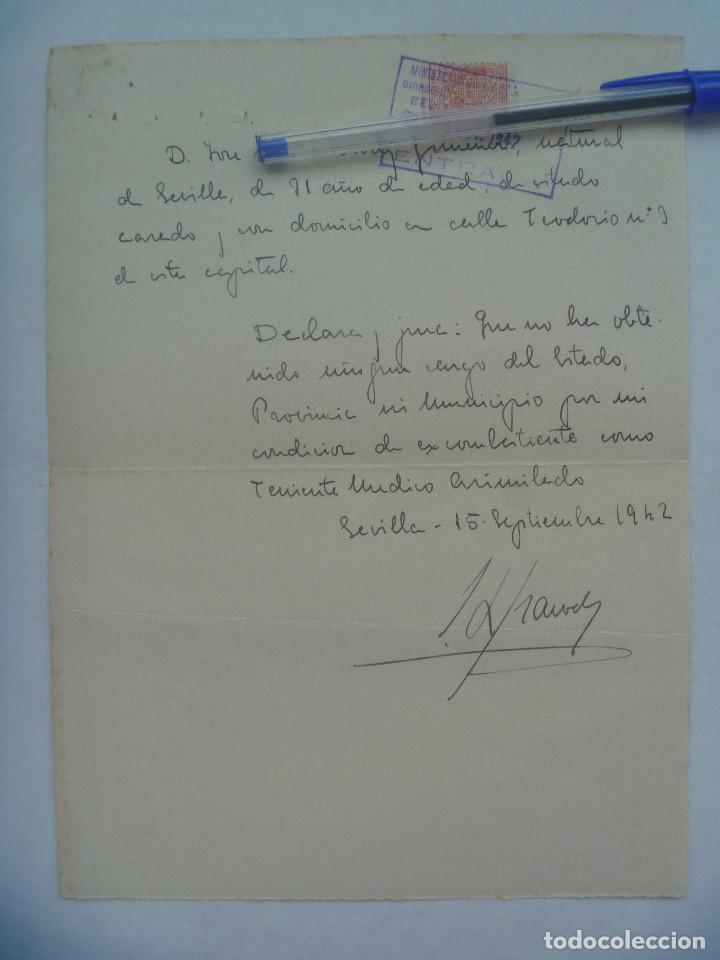 MINIST
D. Jose Jimenez, natural
ENTRA
de Sevilla, de 31 año de edad, de estado
casado y con domicilio en calle Teodosio nº 9
de esta capital.
Declara y jura: Que no ha obte-
nido ningun cargo del Estado,
Provincia ni Municipio por mi
condicion de excombatiente como
Teniente Medico Asimilado
Sevilla - 15 - Septiembre 1942
todocoleccion.net